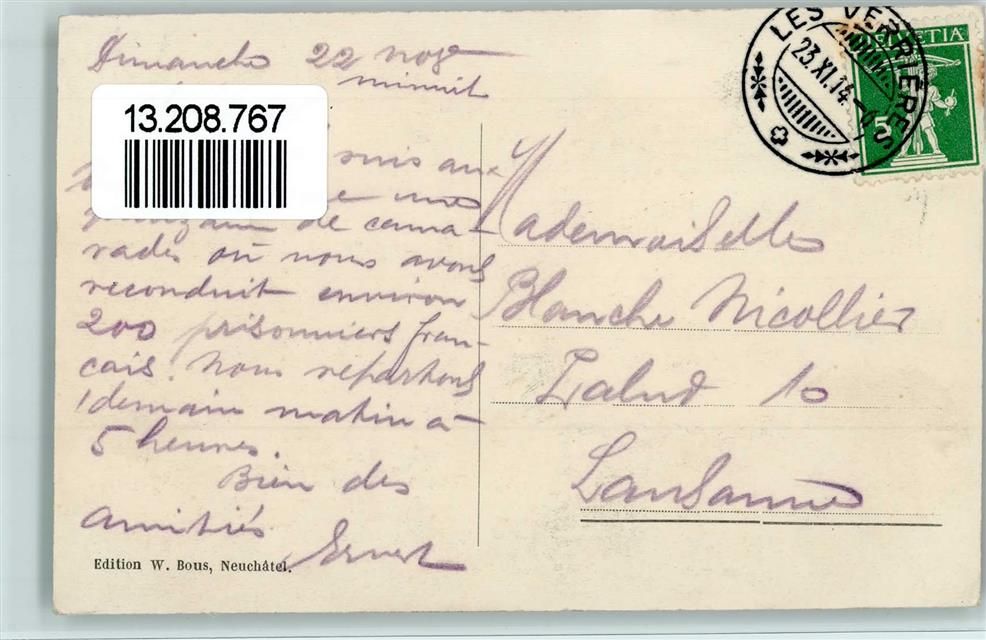 Dimanche 22 nov
minuit
13.208.767
suis aux
une
quinzaine de cama-
rades où nous avons
reconduit environ
200 prisonniers fran-
cais. Nous repartons
demain matin à
5 heures.
Bien des
amitiés
Ernest
Edition W. Bous, Neuchâtel.
LES VERRIÈRES
23.XI.14
HELVETIA
5
Mademoiselle
Blanche Nicollier
Valent 10
Lausanne